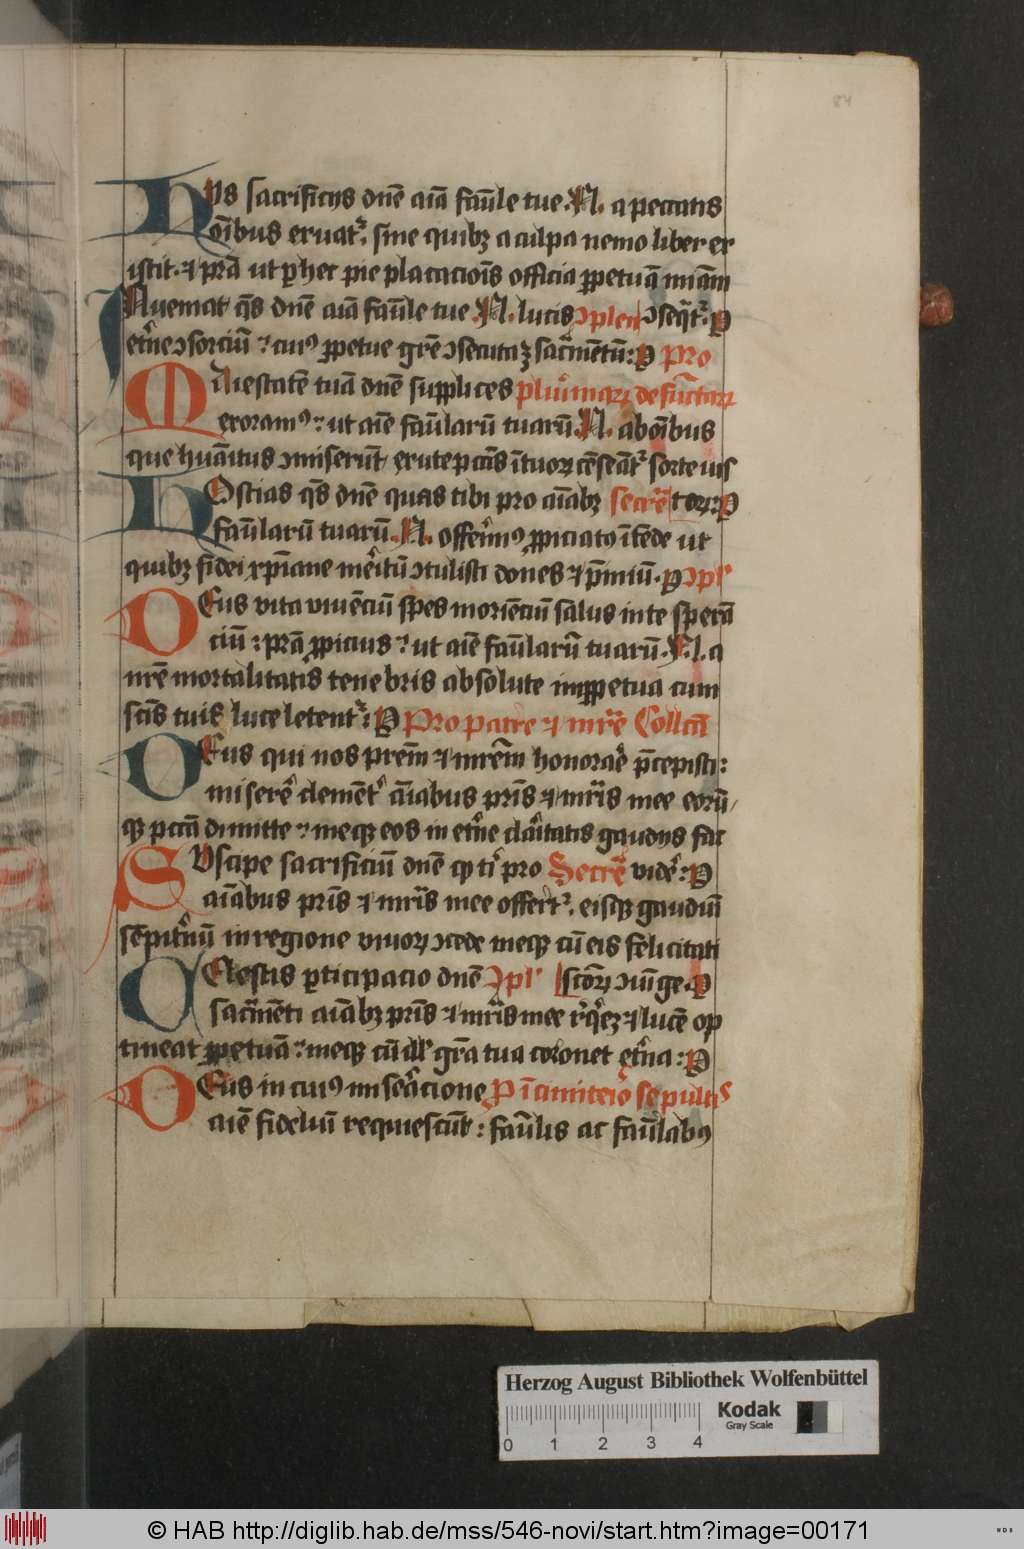 84
HYs sacrificijs dn̄e aīa fa̅u̅le tue. N. a peccatis
oı̅bus eruatͬ. sine quibꝫ a culpa nemo liber ex
istit. ⁊ pr̄a ut ꝑ hec pie placacioı̄s officia ꝓpetuā miām
Aueniat q̄s dn̄e aīa fa̅u̅le tue .N. lucis ꝯplen ꝯseq̄tͬ. P
et͛ne ꝯsorciū ⁊ cuiꝰ ꝓpetue gr̄e ꝯsecuta ē sacͣmētū: P Pro
MAiestatē tuā dn̄e supplices pluͥmaꝝ defūctaꝝ
exoramꝰ ⁊ ut aīe fa̅u̅larū tuarū .N. ab oı̄bus
que huāitus ꝯmiserūt
HOstias q̄s dn̄e quas tibi pro aīabꝫ secrē toꝝ: P
fa̅u̅larū tuarū .N. offeriͫꝰ ꝓpiciatꝰ ītēde ut
quibꝫ fidei xp̄iane meͥitū ꝯtulisti dones ⁊ p̄miū. P ꝯpl'
DEus vita viuēciū spes moriēciū salus in te sperā
ciū: pr̄a ꝓpicius ⁊ ut aīe fa̅u̅larū tuarū .N. a
nr̄e mortalitatis tenebris absolute in ꝓpetua cum
sc̄is tuis luce letentͬ: P Pro patre ⁊ mr̄e Collcā
DEus qui nos prēm ⁊ mrēm honorare p̄cepisti:
miserē clemētͬ aīabus pr̄is ⁊ mr̄is mee eorū
qꝫ pccā dimitte ⁊ meqꝫ eos in et͛ne claͥtatis gaudijs fac
SUscipe sacrificiū dn̄e qͩ tͥ pro Secrē videͬ: P
aīabus pr̄is ⁊ mr̄is mee offertͬ. eisqꝫ gaudiū
sēpit͛nū in regione viuoꝝ ꝯcede meqꝫ cū eis felicitati
CElestis ꝑticipacio dn̄e ꝯpl' sc̄oꝝ ꝯiūge. P
sacͣmēti aīabꝫ pr̄is ⁊ mr̄is mee rͤqͥeꝫ ⁊ lucē op
tineat ꝓpetuā ⁊ meqꝫ cū ill' gr̄a tua coronet et͛na: P
DEus in cuiꝰ miseͣcione P ī cimiterͦ sepultͥs
aīe fideliū requiescūt: fa̅u̅lis ac fa̅u̅labꝰ
Herzog August Bibliothek Wolfenbüttel
0 1 2 3 4
Kodak
Gray Scale
© HAB http://diglib.hab.de/mss/546-novi/start.htm?image=00171